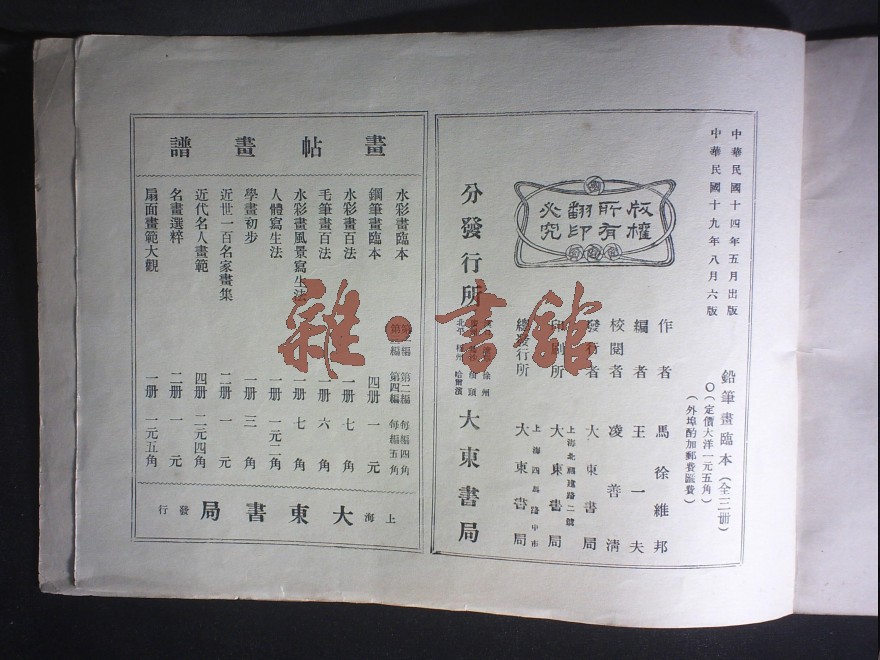 中華民國十四年五月出版
中華民國十九年八月六版
鉛筆畫臨本（全三冊）
〇（定價大洋一元五角）
（外埠酌加郵費匯費）
版權所有
翻印必究
作者 馬徐維邦
編者 王一夫
校閱者 凌善清
發行者 大東書局
印刷所 上海北福建路二號 大東書局
總發行所 上海四馬路中市 大東書局
分發行所
徐州
汕頭
北平 哈爾濱
大東書局
畫帖畫譜
水彩畫臨本 第二編 每編四角
第四編 每編五角
鋼筆畫臨本 四冊 一元
水彩畫百法 一冊 七角
毛筆畫百法 一冊 六角
水彩畫風景寫生法 一冊 七角
人體寫生法 一冊 一元二角
學畫初步 一冊 三角
近世一百名家畫集 二冊 一元
近代名人畫範 四冊 二元四角
名畫選粹 二冊 一元
扇面畫範大觀 一冊 一元五角
上海大東書局發行
雜·書館